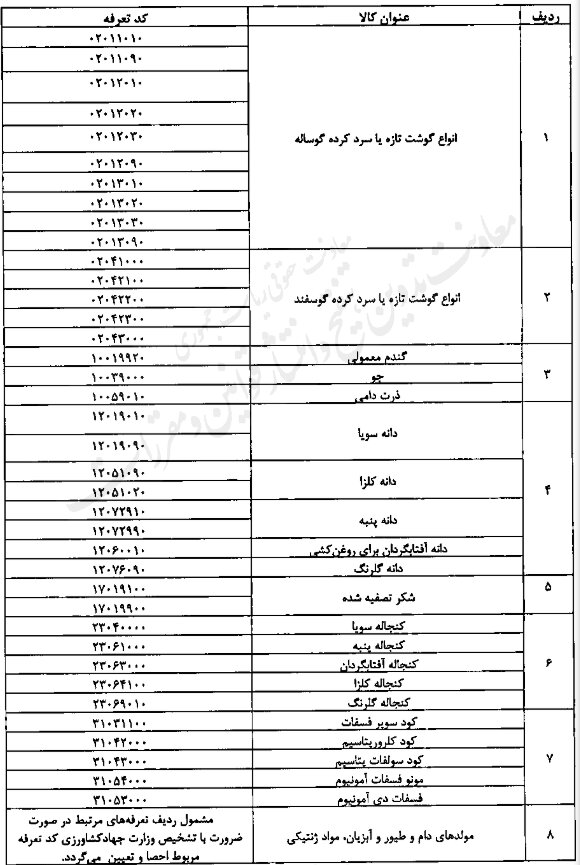 ردیف عنوان کالا کد تعرفه
۱ انواع گوشت تازه یا سرد کرده گوساله
۰۲۰۱۱۰۱۰
۰۲۰۱۱۰۹۰
۰۲۰۱۲۰۱۰
۰۲۰۱۲۰۲۰
۰۲۰۱۲۰۳۰
۰۲۰۱۲۰۹۰
۰۲۰۱۳۰۱۰
۰۲۰۱۳۰۲۰
۰۲۰۱۳۰۳۰
۰۲۰۱۳۰۹۰
۲ انواع گوشت تازه یا سرد کرده گوسفند
۰۲۰۴۱۰۰۰
۰۲۰۴۲۱۰۰
۰۲۰۴۲۲۰۰
۰۲۰۴۲۳۰۰
۰۲۰۴۳۰۰۰
۳
گندم معمولی ۱۰۰۱۹۹۲۰
جو ۱۰۰۳۹۰۰۰
ذرت دامی ۱۰۰۵۹۰۱۰
۴
دانه سویا
۱۲۰۱۹۰۱۰
۱۲۰۱۹۰۹۰
دانه کلزا
۱۲۰۵۱۰۹۰
۱۲۰۵۱۰۲۰
دانه پنبه
۱۲۰۷۲۹۱۰
۱۲۰۷۲۹۹۰
دانه آفتابگردان برای روغن‌کشی ۱۲۰۶۰۰۱۰
دانه گلرنگ ۱۲۰۷۶۰۹۰
۵ شکر تصفیه شده
۱۷۰۱۹۱۰۰
۱۷۰۱۹۹۰۰
۶
کنجاله سویا ۲۳۰۴۰۰۰۰
کنجاله پنبه ۲۳۰۶۱۰۰۰
کنجاله آفتابگردان ۲۳۰۶۳۰۰۰
کنجاله کلزا ۲۳۰۶۴۱۰۰
کنجاله گلرنگ ۲۳۰۶۹۰۱۰
۷
کود سوپر فسفات ۳۱۰۳۱۱۰۰
کود کلرورپتاسیم ۳۱۰۴۲۰۰۰
کود سولفات پتاسیم ۳۱۰۴۳۰۰۰
مونو فسفات آمونیوم ۳۱۰۵۴۰۰۰
فسفات دی آمونیوم ۳۱۰۵۳۰۰۰
۸ مولدهای دام و طیور و آبزیان، مواد ژنتیکی
مشمول ردیف تعرفه‌های مرتبط در صورت
ضرورت با تشخیص وزارت جهادکشاورزی کد تعرفه
مربوط احصا و تعیین می‌گردد.
معاونت حقوقی ریاست جمهوری
معاونت تدوین، تنقیح و انتشار قوانین و مقررات